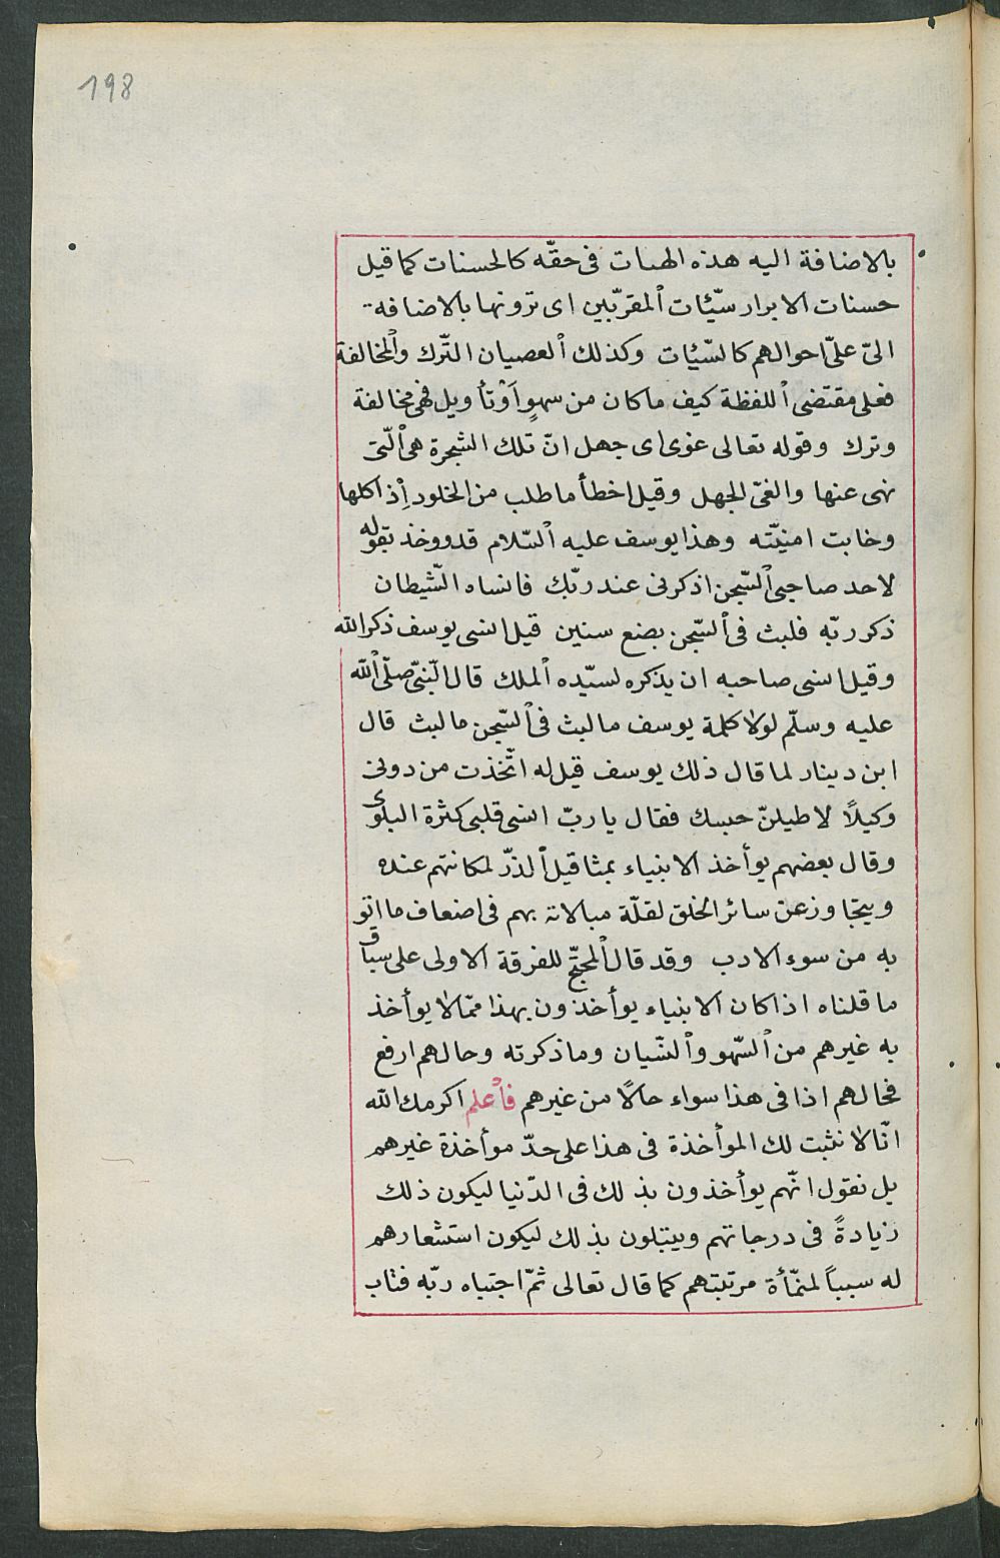 198
بالاضافة اليه هذه الهنات فى حقّه كالحسنات كما قيل
حسنات الابرار سيّئات المقرّبين اى ترونها بالاضافة
الىّ علىّ احوالهم كالسّيّئات وكذلك العصيان التّرك والمخالفة
فعلى مقتضى اللفظة كيف ما كان من سهوٍ أوْ تأويل فهى مخالفة
وترك وقوله تعالى غوى اى جهل انّ تلك الشجرة هى الّتى
نهى عنها والغىّ الجهل وقيل اخطأ ما طلب من الخلود إذ اكلها
وخابت امنيّته وهذا يوسف عليه السّلام قد ووخذ بقوله
لاحد صاحبى السّجن اذكرنى عند ربّك فانساه الشّيطان
ذكر ربّه فلبث فى السّجن بضع سنين قيل انسى يوسف ذكر الله
وقيل انسى صاحبه ان يذكره لسيّده الملك قال النّبىّ صلّى الله
عليه وسلّم لولا كلمة يوسف ما لبث فى السّجن ما لبث قال
ابن دينار لما قال ذلك يوسف قيل له اتّخذت من دونى
وكيلاً لاطيلنّ حبسك فقال يا ربّ انسى قلبى كثرة البلوى
وقال بعضهم يوأخذ الانبياء بمثاقيل الذرّ لمكانتهم عنده
ويتجاوز عن سائر الخلق لقلّة مبالاته بهم فى اضعاف ما اتو
به من سوء الادب وقد قال المحتجّ للفرقة الاولى على سباق
ما قلناه اذا كان الانبياء يوأخذون بهذا ممّا لا يوأخذ
به غيرهم من السّهو والنّسيان وما ذكرته وحالهم ارفع
فحالهم اذا فى هذا سواء حالاً من غيرهم فاعلم اكرمك الله
انّا لا نثبت لك الموأخذة فى هذا على حدّ موأخذة غيرهم
بل نقول انّهم يوأخذون بذلك فى الدّنيا ليكون ذلك
زيادةً فى درجاتهم ويبتلون بذلك ليكون استشعارهم
له سبباً لمنمّأة مرتبتهم كما قال تعالى ثمّ اجتباه ربّه فتاب